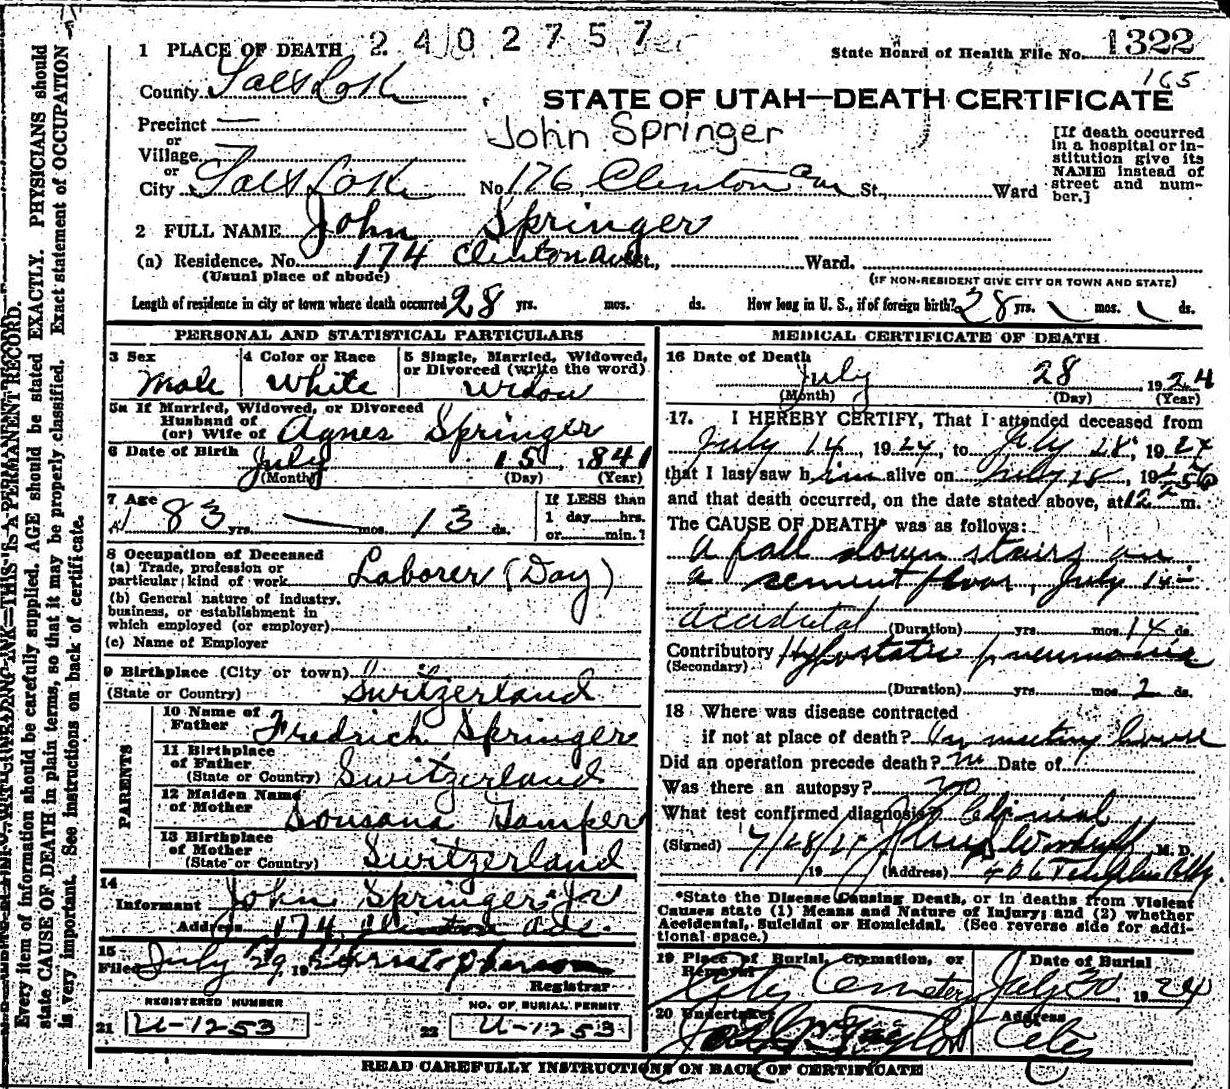 2402757
1 PLACE OF DEATH
State Board of Health File No. 1322
165
County Salt Lake
STATE OF UTAH—DEATH CERTIFICATE
Precinct —
or
Village
or
John Springer
[If death occurred in a hospital or institution give its NAME instead of street and number.]
City Salt Lake No. 176 Clinton Ave St., Ward
2 FULL NAME John Springer
(a) Residence. No. 174 Clinton Ave St., Ward.
(Usual place of abode)
(IF NON-RESIDENT GIVE CITY OR TOWN AND STATE)
Length of residence in city or town where death occurred 28 yrs. mos. ds. How long in U. S., if of foreign birth? 28 yrs. mos. ds.
PERSONAL AND STATISTICAL PARTICULARS
3 Sex
Male
4 Color or Race
White
5 Single, Married, Widowed,
or Divorced (write the word)
Widow
5a If Married, Widowed, or Divorced
Husband of
(or) Wife of Agnes Springer
6 Date of Birth July 15, 1841
(Month) (Day) (Year)
7 Age
83 yrs. — mos. 13 ds.
If LESS than
1 day......hrs.
or......min.?
8 Occupation of Deceased
(a) Trade, profession or
particular kind of work Laborer (Day)
(b) General nature of industry,
business, or establishment in
which employed (or employer)
(c) Name of Employer
9 Birthplace (City or town)
(State or Country) Switzerland
PARENTS
10 Name of
Father Fredrich Springer
11 Birthplace
of Father
(State or Country) Switzerland
12 Maiden Name
of Mother Sousana Gamper
13 Birthplace
of Mother
(State or Country) Switzerland
14
Informant John Springer Jr
Address 174 Clinton Ave.
15
Filed July 29, 192
Registrar
REGISTERED NUMBER
21 U-1253
NO. OF BURIAL PERMIT
22 U-1253
MEDICAL CERTIFICATE OF DEATH
16 Date of Death
July 28, 1924
(Month) (Day) (Year)
17. I HEREBY CERTIFY, That I attended deceased from
July 14, 1924, to July 28, 1924
that I last saw him alive on July 28, 19
and that death occurred, on the date stated above, at 12 m.
The CAUSE OF DEATH* was as follows:
A fall down stairs on
a sement floor, July 14
accidental (Duration) yrs. mos. 14 ds.
Contributory Hypostatic pneumonia
(Secondary)
(Duration) yrs. mos. 2 ds.
18 Where was disease contracted
if not at place of death? In meeting house
Did an operation precede death? no Date of
Was there an autopsy? no
What test confirmed diagnosis? Clinical
(Signed) 7/28/24 M. D.
19 (Address) 406
*State the Disease Causing Death, or in deaths from Violent
Causes state (1) Means and Nature of Injury; and (2) whether
Accidental, Suicidal or Homicidal. (See reverse side for addi-
tional space.)
19 Place of Burial, Cremation, or
Removal
City Cemetery
Date of Burial
July 30, 1924
20 Undertaker
Address
City
READ CAREFULLY INSTRUCTIONS ON BACK OF CERTIFICATE
THIS IS A PERMANENT RECORD.
Every item of information should be carefully supplied. AGE should be stated EXACTLY. PHYSICIANS should
state CAUSE OF DEATH in plain terms, so that it may be properly classified. Exact statement of OCCUPATION
is very important. See instructions on back of certificate.